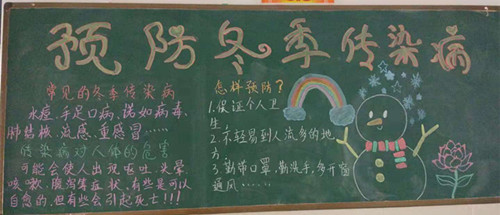 预防冬季传染病
常见的冬季传染病
水痘、手足口病、诺如病毒、
肺结核、流感、重感冒……
传染病对人体的危害
可能会使人出现呕吐、头晕、
咳嗽、腹泻等症状,有些是可以
自愈的,但有些会引起死亡!!!
怎样预防?
1.保证个人卫
生,
2.不轻易到人流多的地
方,
3.勤带口罩,勤洗手,多开窗
通风……